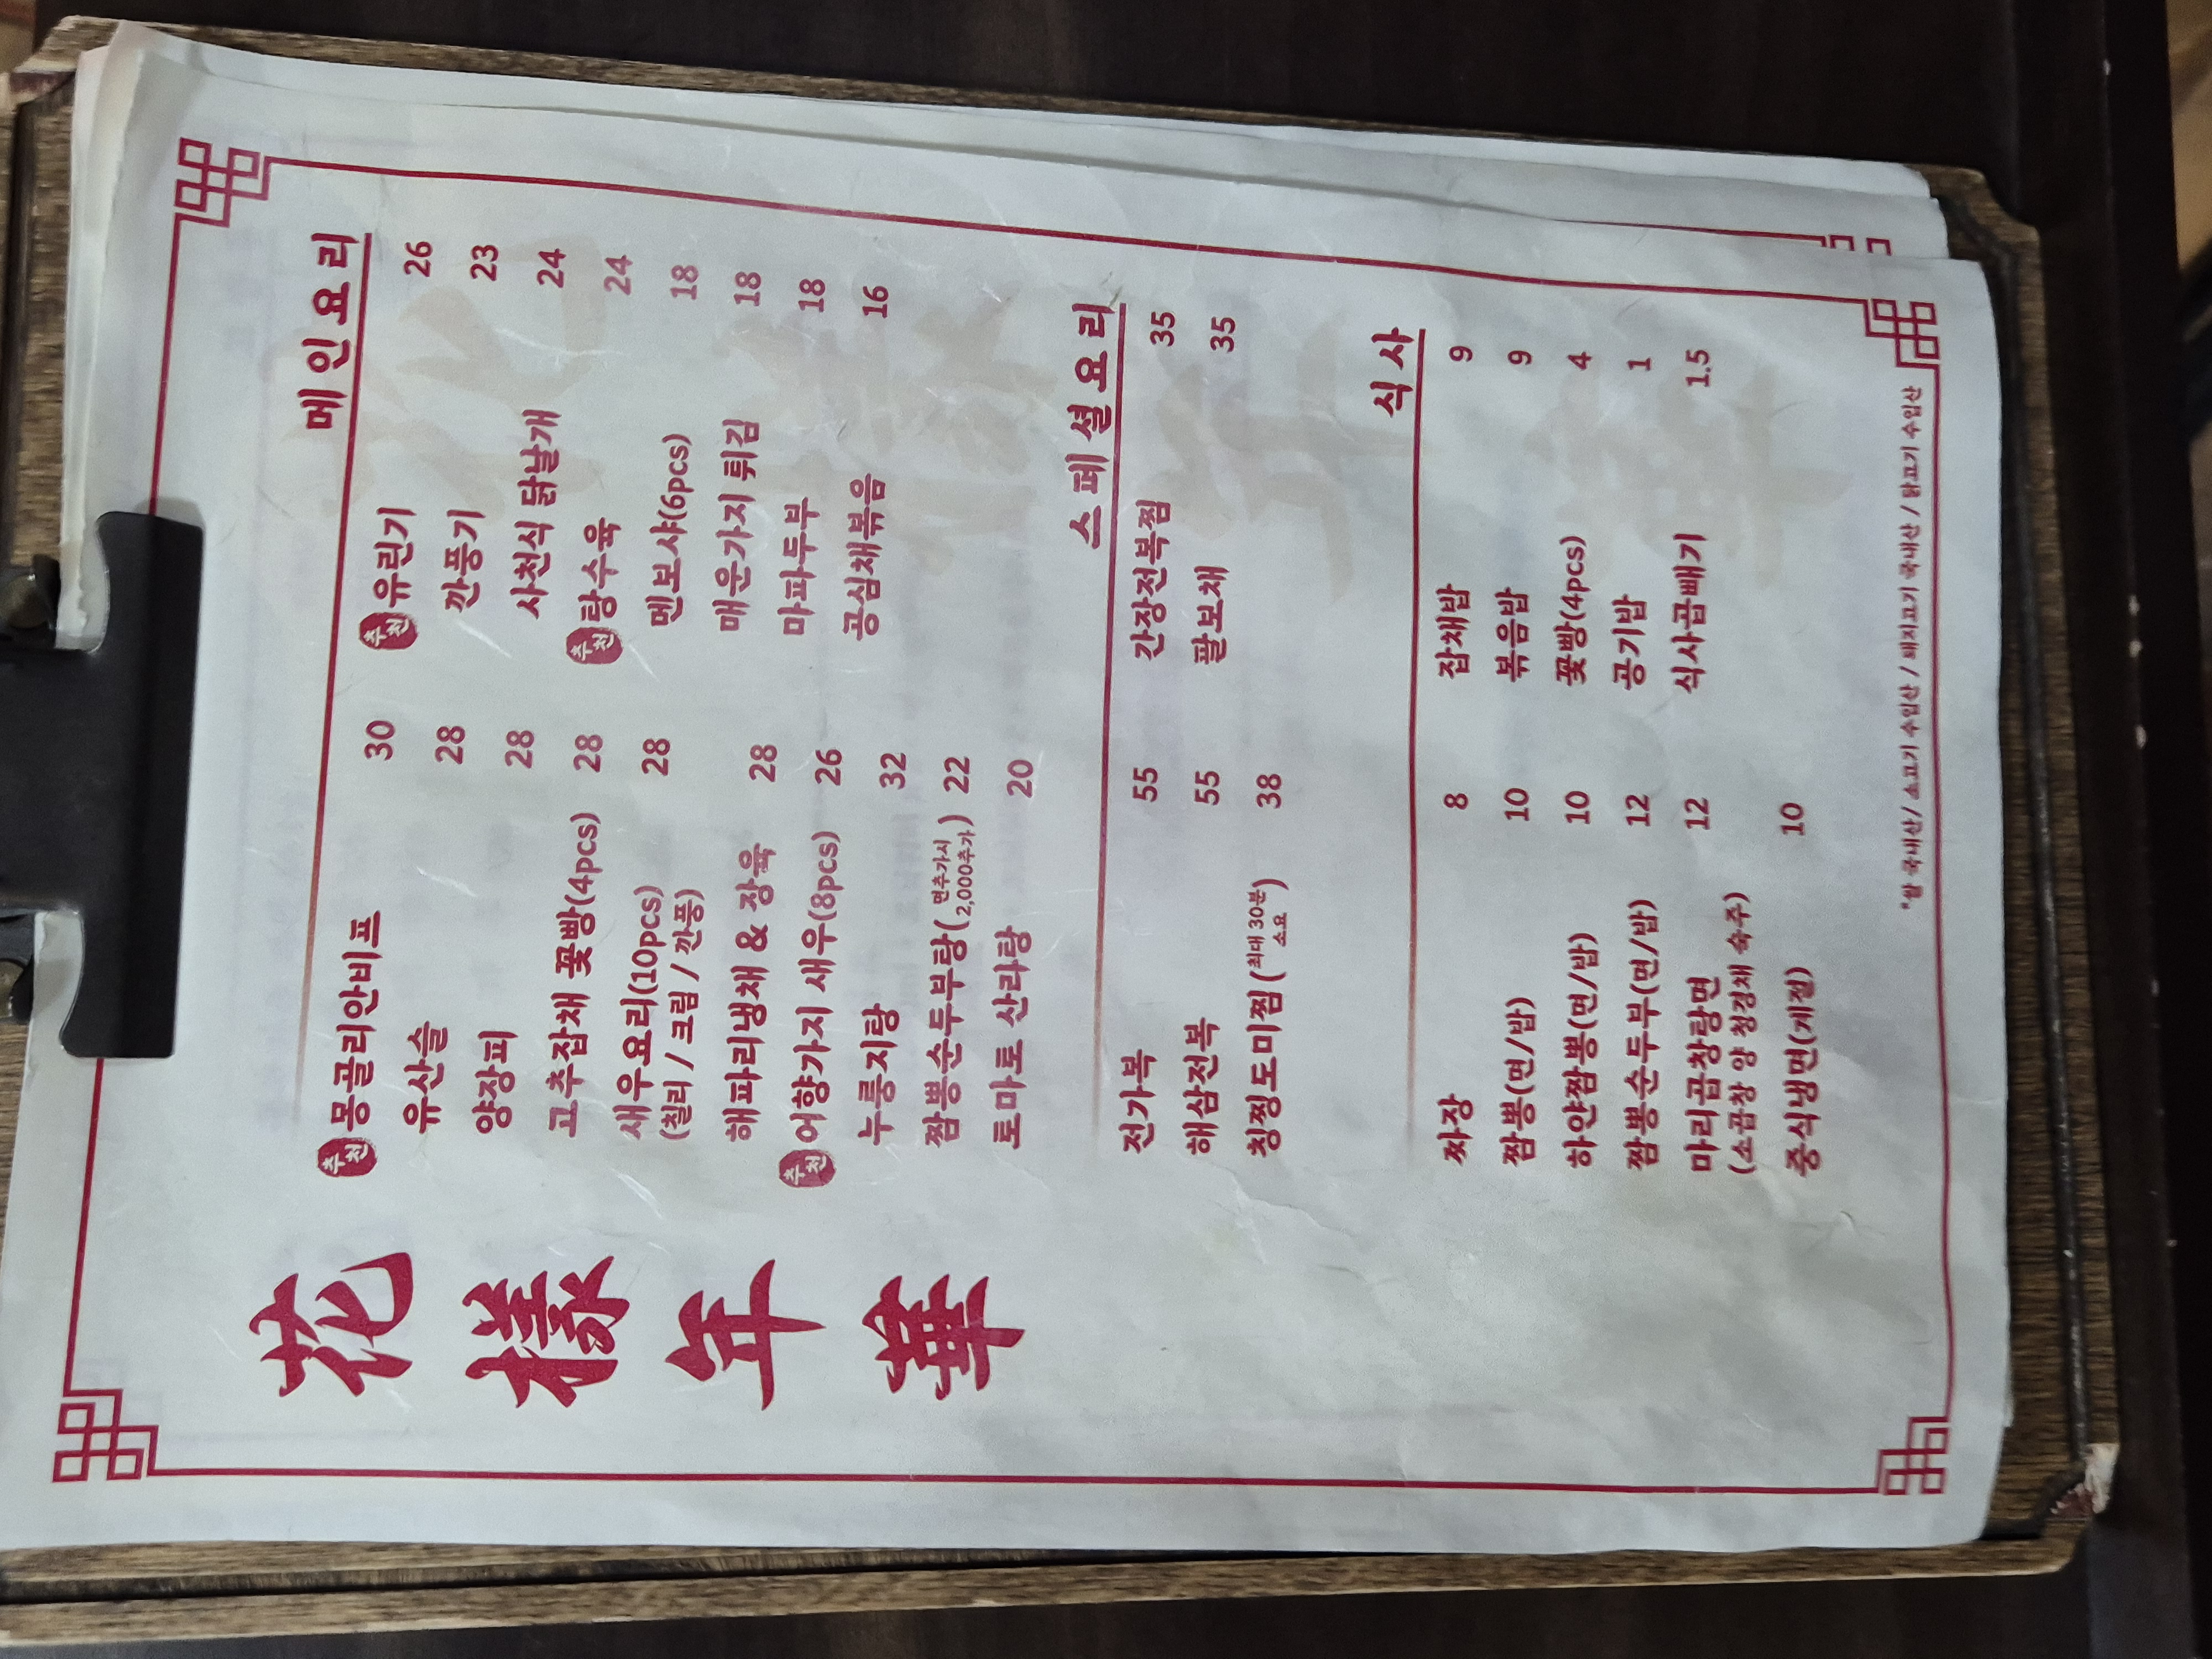 花樣年華
메인요리
추천 몽골리안비프 30
유산슬 28
양장피 28
고추잡채 꽃빵(4pcs) 28
새우요리(10pcs) 28
(칠리 / 크림 / 깐풍)
해파리냉채 & 장육 28
추천 어향가지 새우(8pcs) 26
누룽지탕 32
짬뽕순두부탕(면추가시 2,000추가) 22
토마토 산라탕 20
추천 유린기 26
깐풍기 23
사천식 닭날개 24
추천 탕수육 24
멘보샤(6pcs) 18
매운가지 튀김 18
마파두부 18
공심채볶음 16
스페셜요리
전가복 55
해삼전복 55
칭찡도미찜(최대 30분 소요) 38
간장전복찜 35
팔보채 35
식사
짜장 8
짬뽕(면/밥) 10
하얀짬뽕(면/밥) 10
짬뽕순두부(면/밥) 12
마라곱창탕면 12
(소곱창 양 청경채 숙주)
중식냉면(계절) 10
잡채밥 9
볶음밥 9
꽃빵(4pcs) 4
공기밥 1
식사곱빼기 1.5
*쌀 국내산/ 소고기 수입산 / 돼지고기 국내산 / 닭고기 수입산